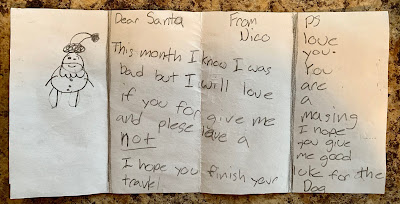 Dear Santa
From
Nico
This month I know I was
bad but I will love
if you for give me
and plese leave a
not
I hope you finish your
travel
ps
love
you.
You
are
a
masing
I hope
you give
me good
luke for the
Dog